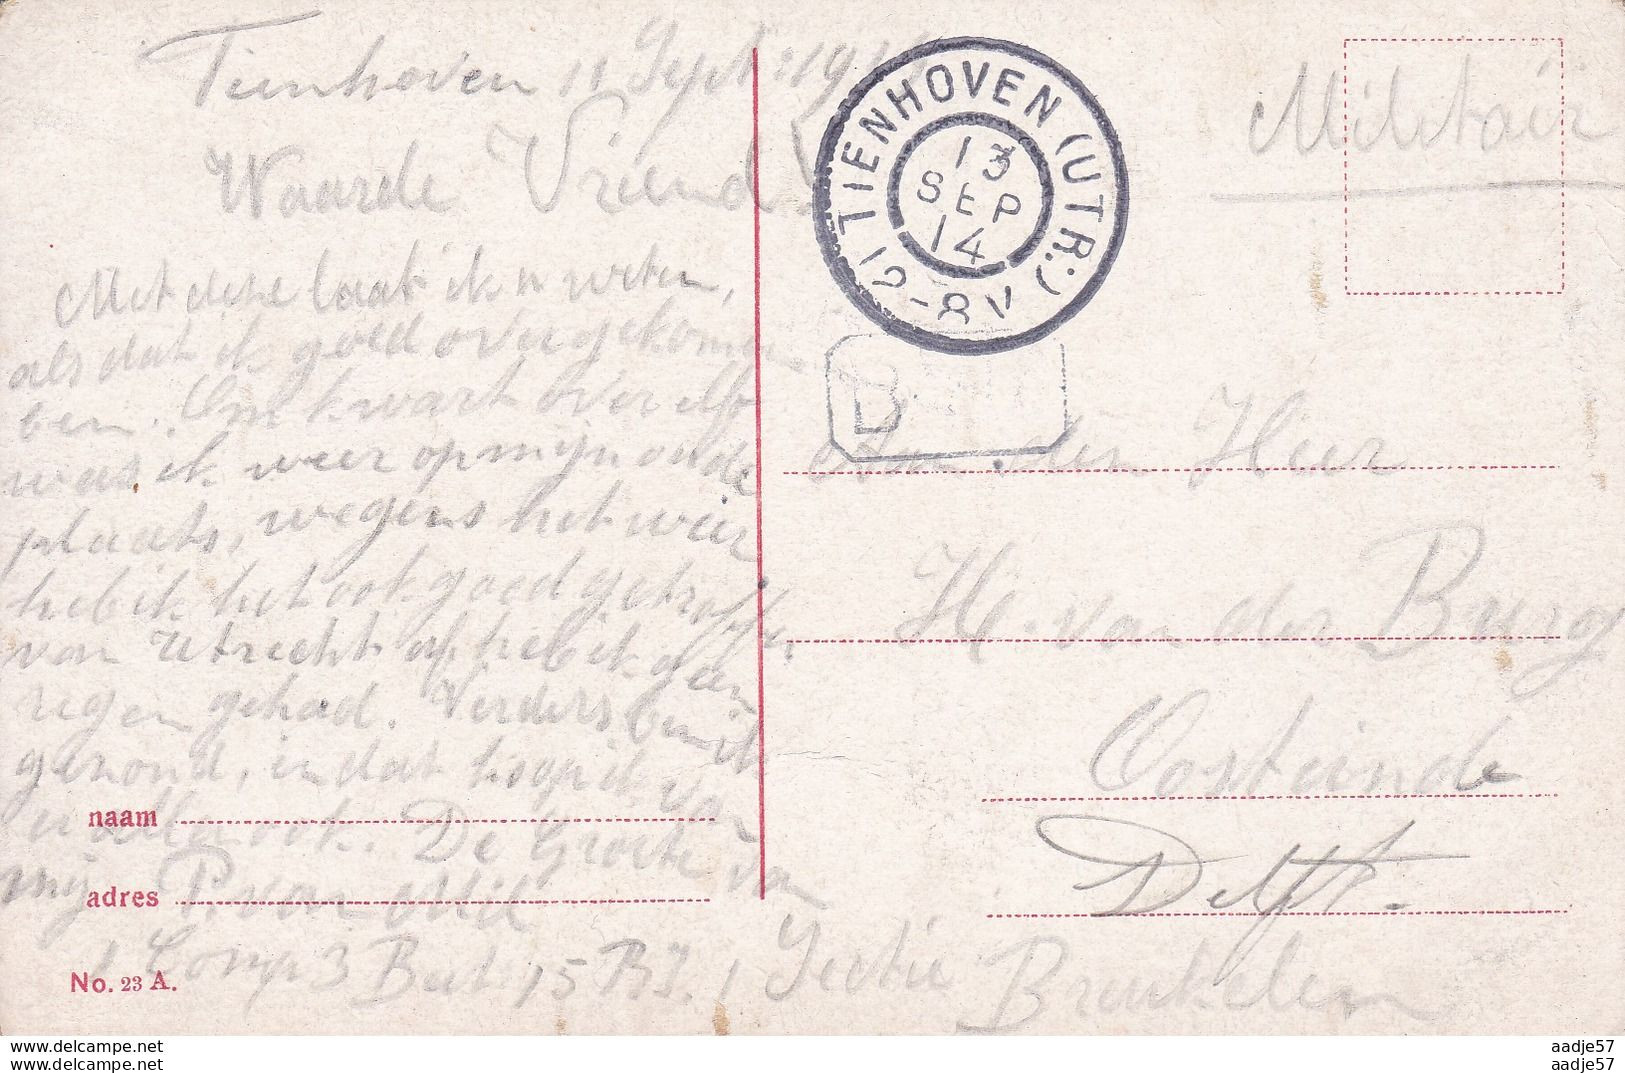 Tienhoven 11 Sept. 191
Waarde Vriend
Met deze laat ik u weten,
als dat ik goed overgekomen
ben. Om kwart over elf
was ik weer op mijn oude
plaats, wegens het weer
heb ik het ook goed getroffen
van Utrecht af heb ik geen
regen gehad. Verders ben ik
gezond, en dat hoop ik van
u allen ook. De Groete van
mij P. van
1 Comp 3 Bat 15 R.I. 1 Sectie
Breukelen
naam
adres
No. 23 A.
TIENHOVEN (UTR.)
13
SEP
14
12-8V
B
Militair
Aan den Heer
H. van der Burg
Oosteinde
Delft.
www.delcampe.net
www.delcampe.net
aadje57
aadje57